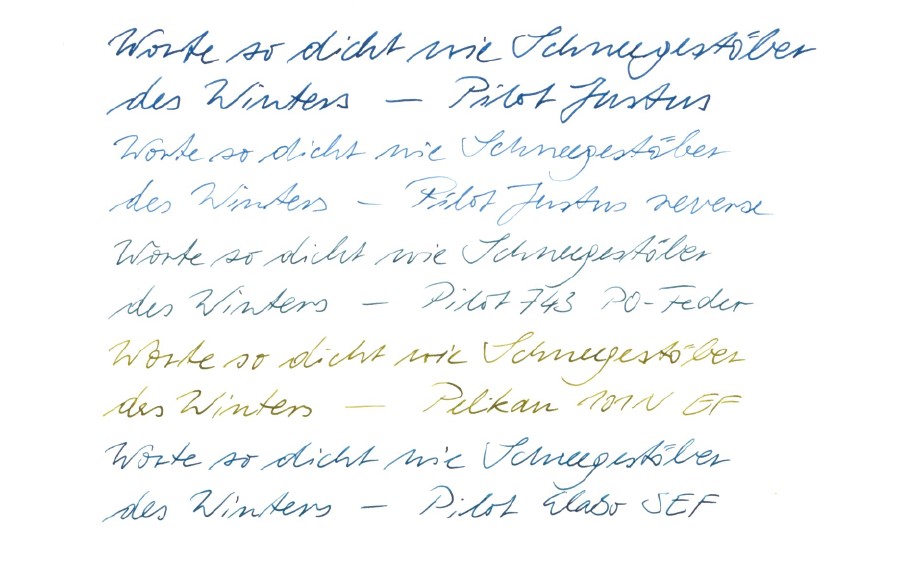 Worte so dicht wie Schneegestöber
des Winters — Pilot Justus
Worte so dicht wie Schneegestöber
des Winters — Pilot Justus reverse
Worte so dicht wie Schneegestöber
des Winters — Pilot 743 PO-Feder
Worte so dicht wie Schneegestöber
des Winters — Pelikan 101N EF
Worte so dicht wie Schneegestöber
des Winters — Pilot Elabo SEF